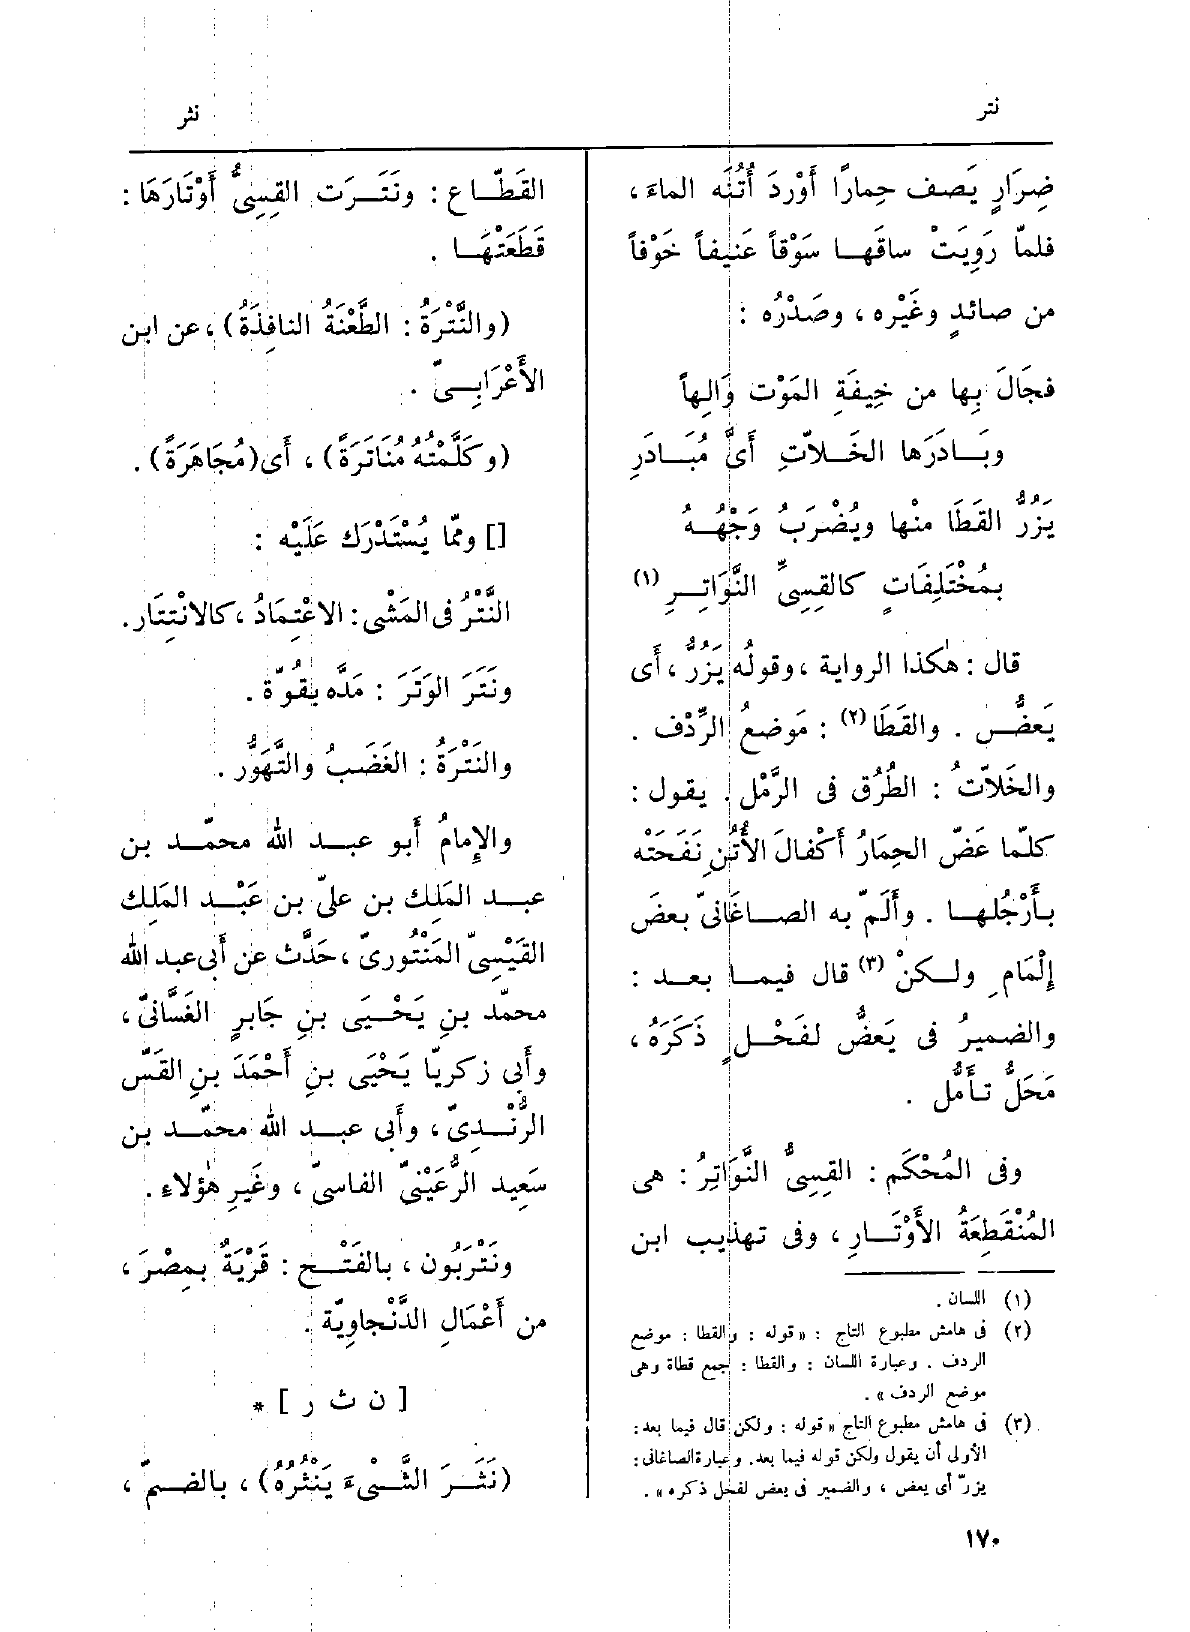 نتر
نثر
ضِرَارٍ يَصف حِمارًا أَوْردَ أُتُنَه الماءَ ،
فلمّا رَوِيَتْ ساقَها سَوْقاً عَنِيفاً خَوْفاً
من صائدٍ وغَيْره ، وصَدْرُه :
فجَالَ بِها من خِيفَةِ المَوْت وَالِهاً
وبَادَرَها الخَلاّتِ أَىَّ مُبَادَرِ
يَزُرُّ القَطَا منْها ويُضْرَبُ وَجْهُهُ
بمُخْتَلِفَاتٍ كالقِسِىِّ النَّوَاتِرِ (١)
قال : هٰكذا الرواية ، وقولُه يَزُرُّ ، أَى
يَعضُّ . والقَطَا (٢) : مَوضعُ الرِّدْف .
والخَلاّتُ : الطُّرُق فى الرَّمْل . يقول :
كلمّا عَضّ الحِمَارُ أَكْفالَ الأُتُنِ نَفَحَتْه
بأَرْجُلها . وأَلَمّ به الصاغَانىّ بعض
إِلْمَامِ ولكنْ (٣) قال فيما بعد :
والضميرُ فى يَعَضُّ لفَحْلٍ ذَكَرَهُ ،
مَحَلُّ تأَمُّل .
وفى المُحْكَم : القِسِىُّ النَّوَاتِرُ : هى
المُنْقَطِعَةُ الأَوْتَارِ ، وفى تهذيب ابن
(١) اللسان .
(٢) فى هامش مطبوع التاج : « قوله : والقطا : موضع
الردف . وعبارة اللسان : والقطا : جمع قطاة وهى
موضع الردف » .
(٣) فى هامش مطبوع التاج « قوله : ولكن قال فيما بعد :
الأولى أن يقول ولكن قوله فيما بعد. وعبارة الصاغانى :
يزرّ أى يعض ، والضمير فى يعض لفحل ذكره » .
القَطّاع : ونَتَرَت القِسِىُّ أَوْتَارَهَا :
قَطَعَتْهَا .
(والنَّتْرَةُ : الطَّعْنَةُ النافِذَةُ) ، عن ابن
الأَعْرَابِىّ .
(وكَلَّمْتُهُ مُنَاتَرَةً) ، أَى (مُجَاهَرَةً) .
[] وممّا يُسْتَدْرَك عَلَيْه :
النَّتْرُ فى المَشْىِ : الاعْتِمَادُ ، كالانْتِتَار.
ونَتَرَ الوَتَرَ : مَدَّه بقُوّة .
والنَتْرَةُ : الغَضَبُ والتَّهَوُّر .
والإِمامُ أَبو عبد الله محمّد بن
عبد المَلِك بن علىّ بن عَبْد المَلِك
القَيْسِىّ المَنْتُورىّ ، حَدَّث عن أَبى عبد الله
محمّد بنِ يَحْيَى بنِ جَابرٍ الغَسَّانىّ ،
وأَبى زكريّا يَحْيَى بنِ أَحْمَدَ بنِ القَسّ
الرُّنْدِىّ ، وأَبى عبد الله محمّد بن
سَعِيد الرُّعَيْنىّ الفاسىّ ، وغَيرِ هٰؤلاء .
ونَتْرَبُون ، بالفَتْح : قَرْيَةٌ بمِصْرَ ،
من أَعْمَالِ الدَّنْجاوِيّة .
[ ن ث ر ] *
(نَثَرَ الشَّىءَ يَنْثُرُهُ) ، بالضمّ ،
١٧٠